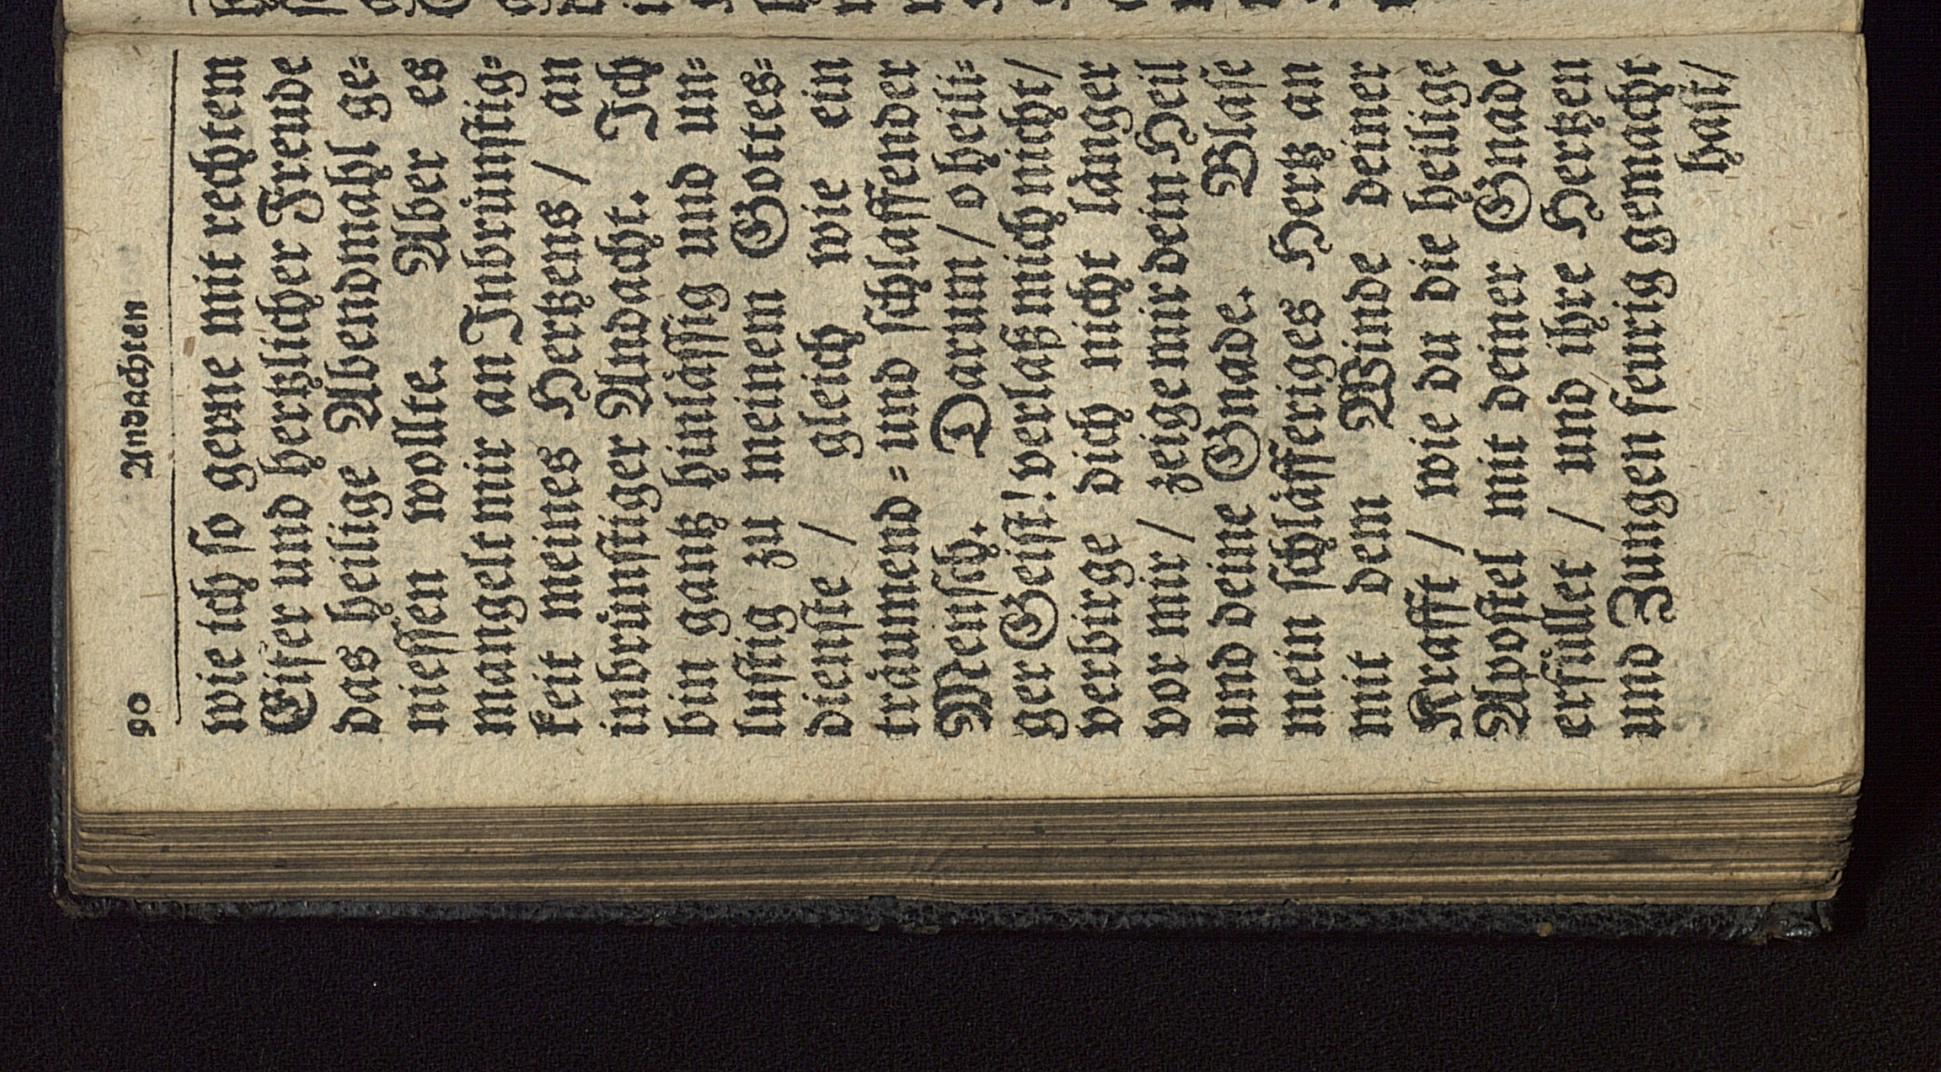 90 Andachten
wie ich so gerne mit rechtem
Eifer und hertzlicher Freude
das heilige Abendmahl ge⸗
niessen wollte. Aber es
mangelt mir an Inbruͤnstig⸗
keit meines Hertzens / an
inbruͤnstiger Andacht. Ich
bin gantz hinlaͤssig und un⸗
lustig zu meinem Gottes⸗
dienste / gleich wie ein
traͤumend⸗ und schlaffender
Mensch. Darum / o heili⸗
ger Geist! verlaß mich nicht /
verbirge dich nicht laͤnger
vor mir / zeige mir dein Heil
und deine Gnade. Blase
mein schlaͤfferiges Hertz an
mit dem Winde deiner
Krafft / wie du die heilige
Apostel mit deiner Gnade
erfuͤllet / und ihre Hertzen
und Zungen feurig gemacht
hast /